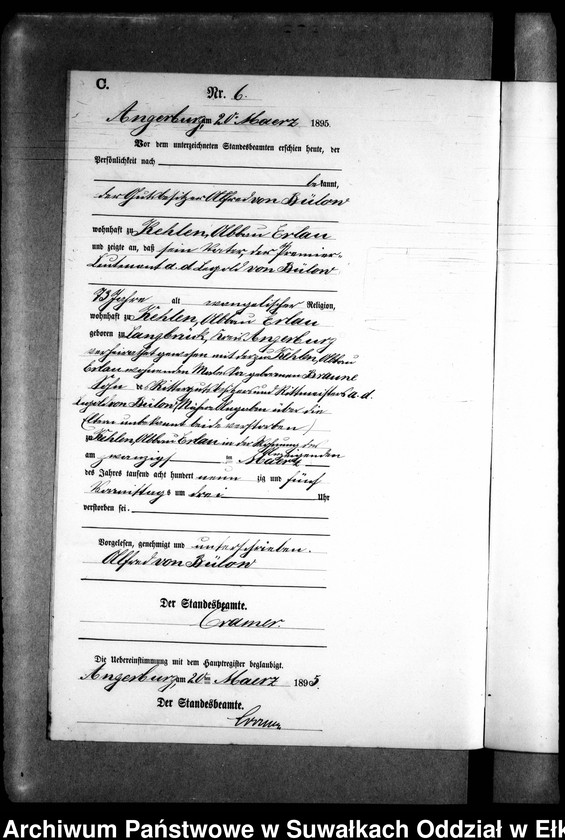 C.
Nr. 6.
Angerburg, am 20 Maerz 1895.
Vor dem unterzeichneten Standesbeamten erschien heute, der
Persönlichkeit nach
bekannt,
der Gutsbesitzer Alfred von Bülow
wohnhaft zu Kehlen, Abbau Erlau
und zeigte an, daß sein Vater, der Premier-
Lieutenant a. d. Leopold von Bülow
73 Jahre alt evangelischer Religion,
wohnhaft zu Kehlen, Abbau Erlau
geboren zu Kreis Angerburg
verheirathet gewesen mit der zu Kehlen, Abbau
Erlau wohnenden geborenen Braune
Sohn des Rittergutsbesitzers und Rittmeisters a. d.
Leopold von Bülow (Nähere Angaben über die
unbekannt beide verstorben)
zu Kehlen, Abbau Erlau in der Wohnung des
Anzeigenden
am zwanzigsten Maerz
des Jahres tausend acht hundert neunzig und fünf
Vormittags um drei Uhr
verstorben sei.
Vorgelesen, genehmigt und unterschrieben.
Alfred von Bülow
Der Standesbeamte.
Cramer.
Die Uebereinstimmung mit dem Hauptregister beglaubigt.
Angerburg, am 20ten Maerz 1895.
Der Standesbeamte.
Cramer
Archiwum Państwowe w Suwałkach Oddział w Ełk